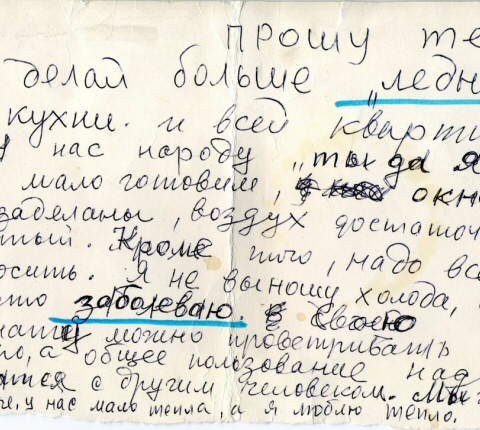 прошу те
делай больше „ледн
кухни. и всей кварти
нас народу „ты да я
мало готовим, окн
заделаны, воздух достаточ
тый. Кроме того, надо все
осить. Я не выношу холода,
заболеваю. Свою
можно проветривать
о, а общее пользование над
ится с другим человеком. Мы
че, у нас мало тепла, а я люблю тепло.